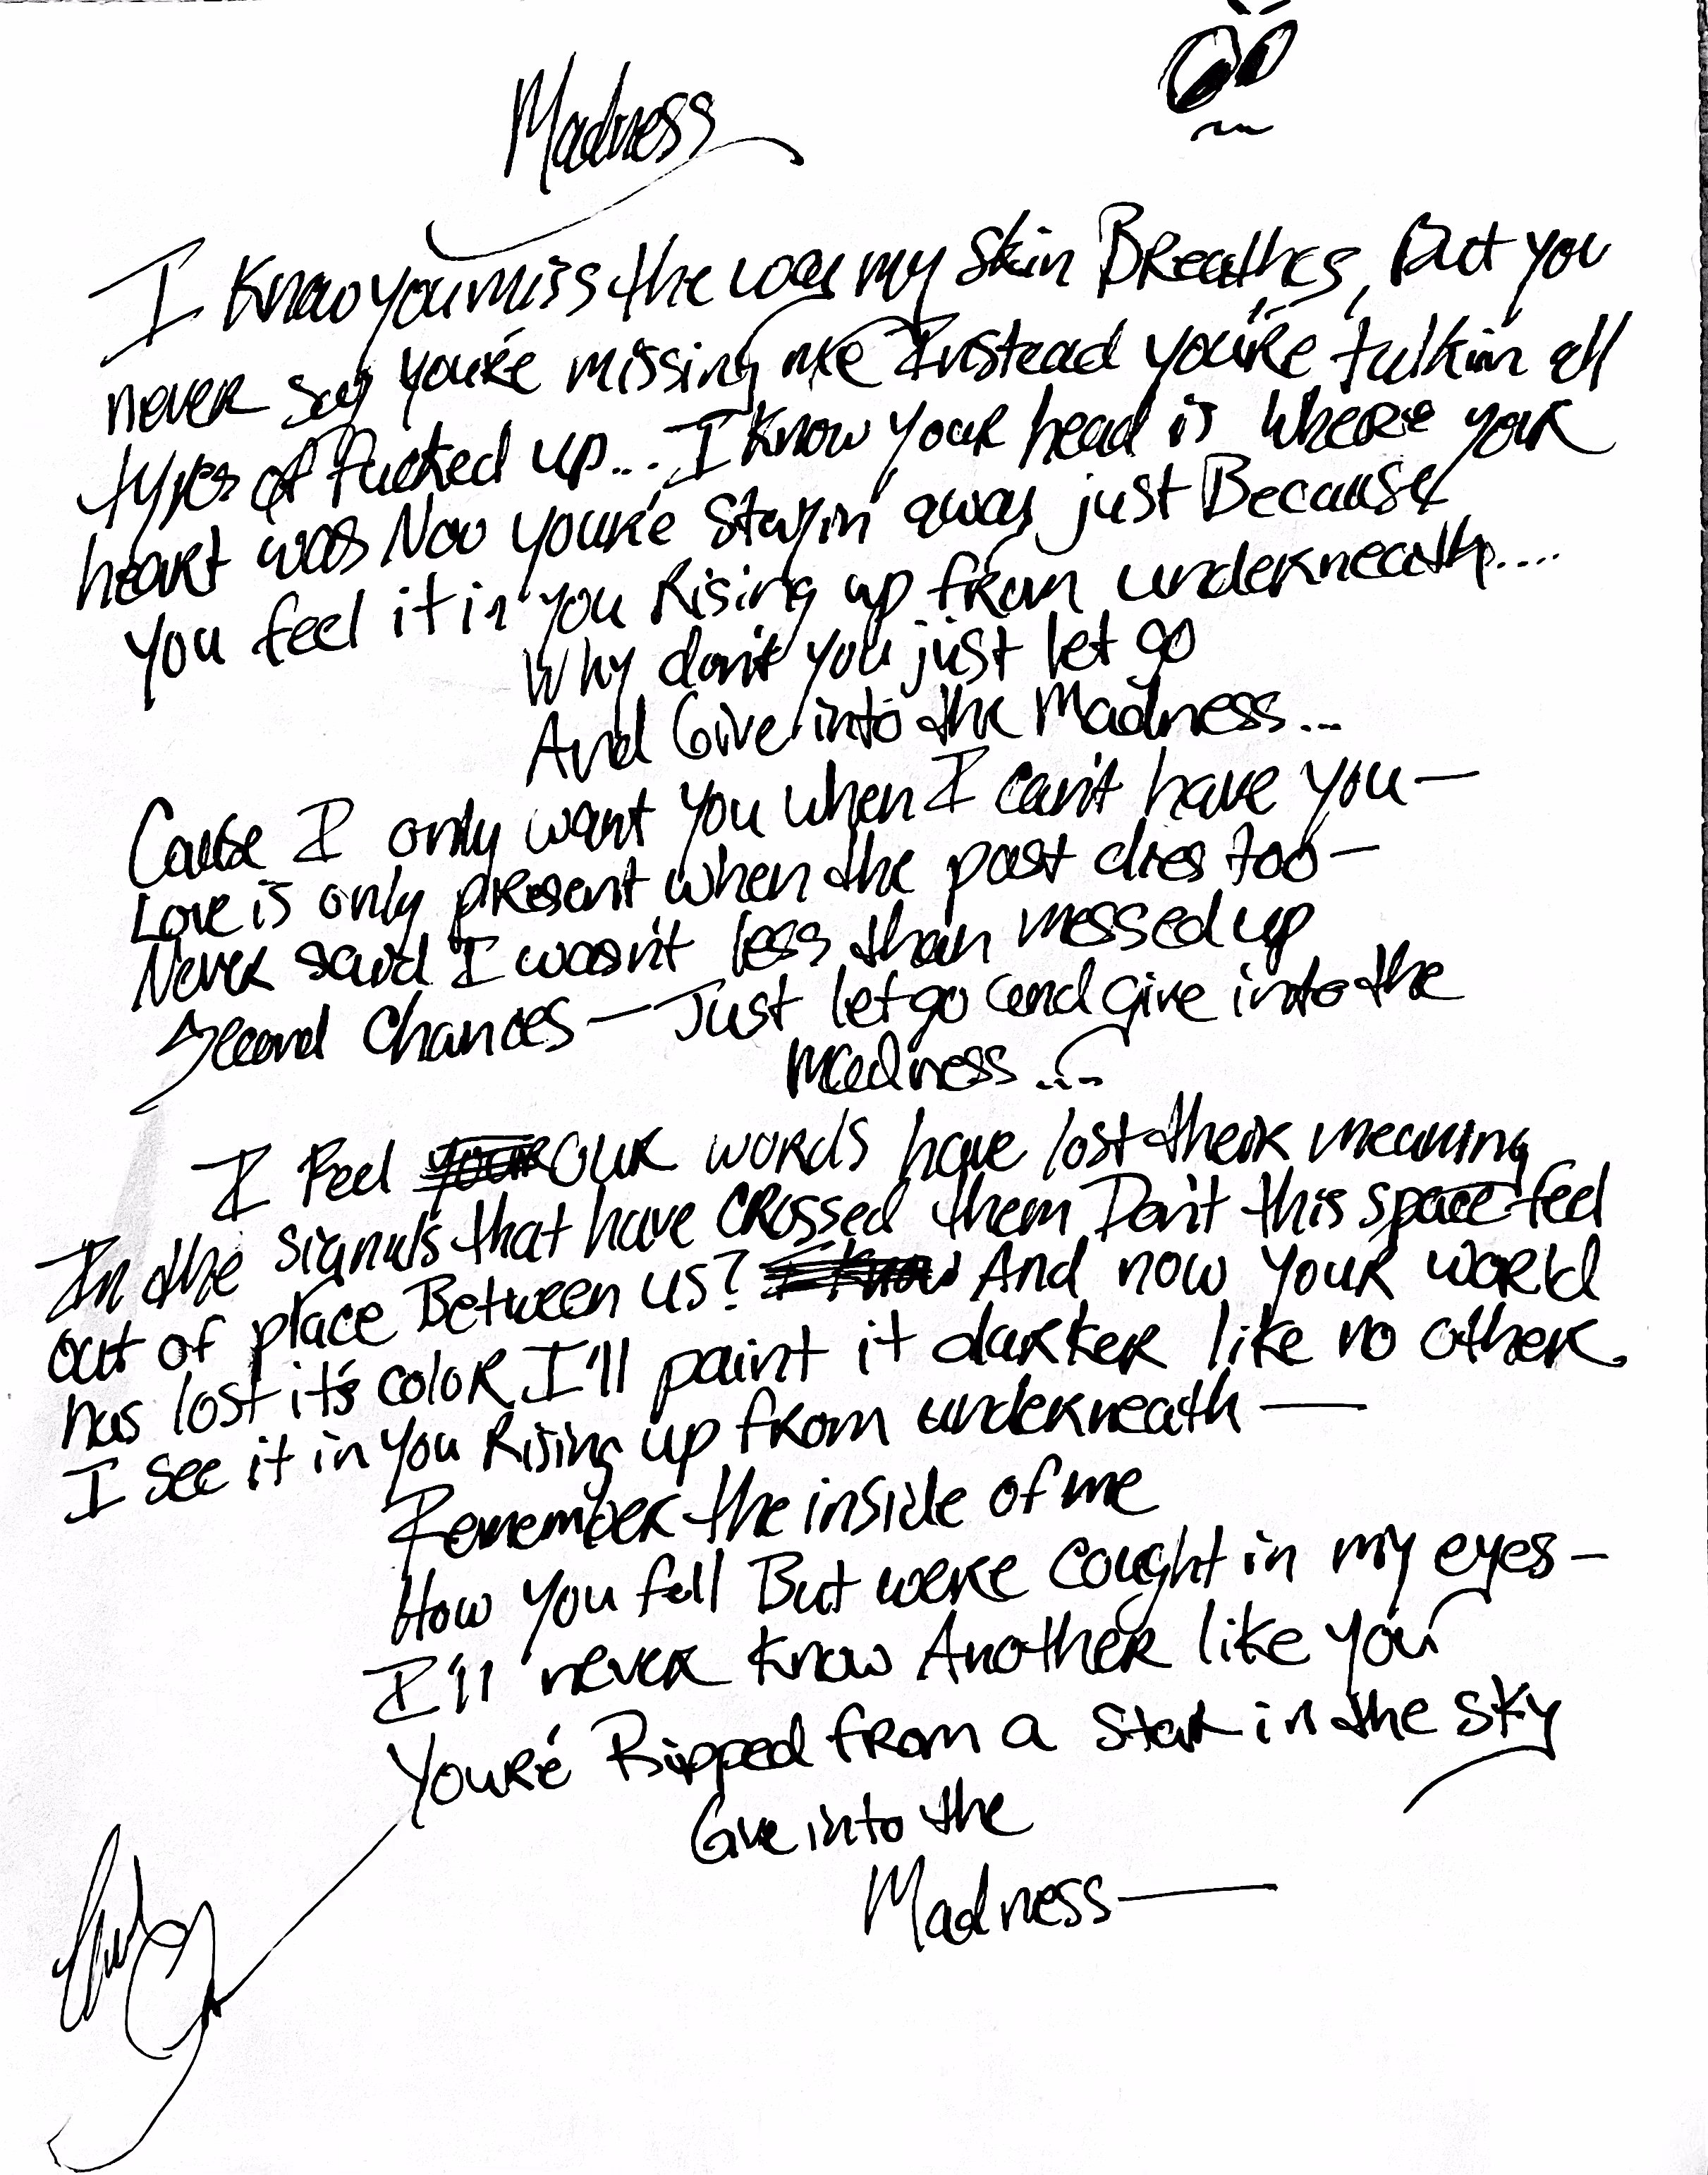 Madness
I know you miss the way my skin Breathes, But you
never say you're missing me Instead you're talkin all
types of fucked up... I know your head is where your
heart was Now you're stayin away just Because
you feel it in you Rising up from underneath....
Why don't you just let go
And Give into the Madness...
Cause I only want you when I can't have you —
Love is only present when the past dies too —
Never said I wasn't less than messed up
Second Chances — Just let go and give into the
Madness ...
I Feel your our words have lost their meaning
In the signals that have crossed them Don't this space feel
out of place Between us? I know And now your world
has lost it's color I'll paint it darker like no other.
I see it in you Rising up from underneath —
Remember the inside of me
How you fell But were caught in my eyes —
I'll never know Another like you
You're Ripped from a star in the sky
Give into the
Madness —